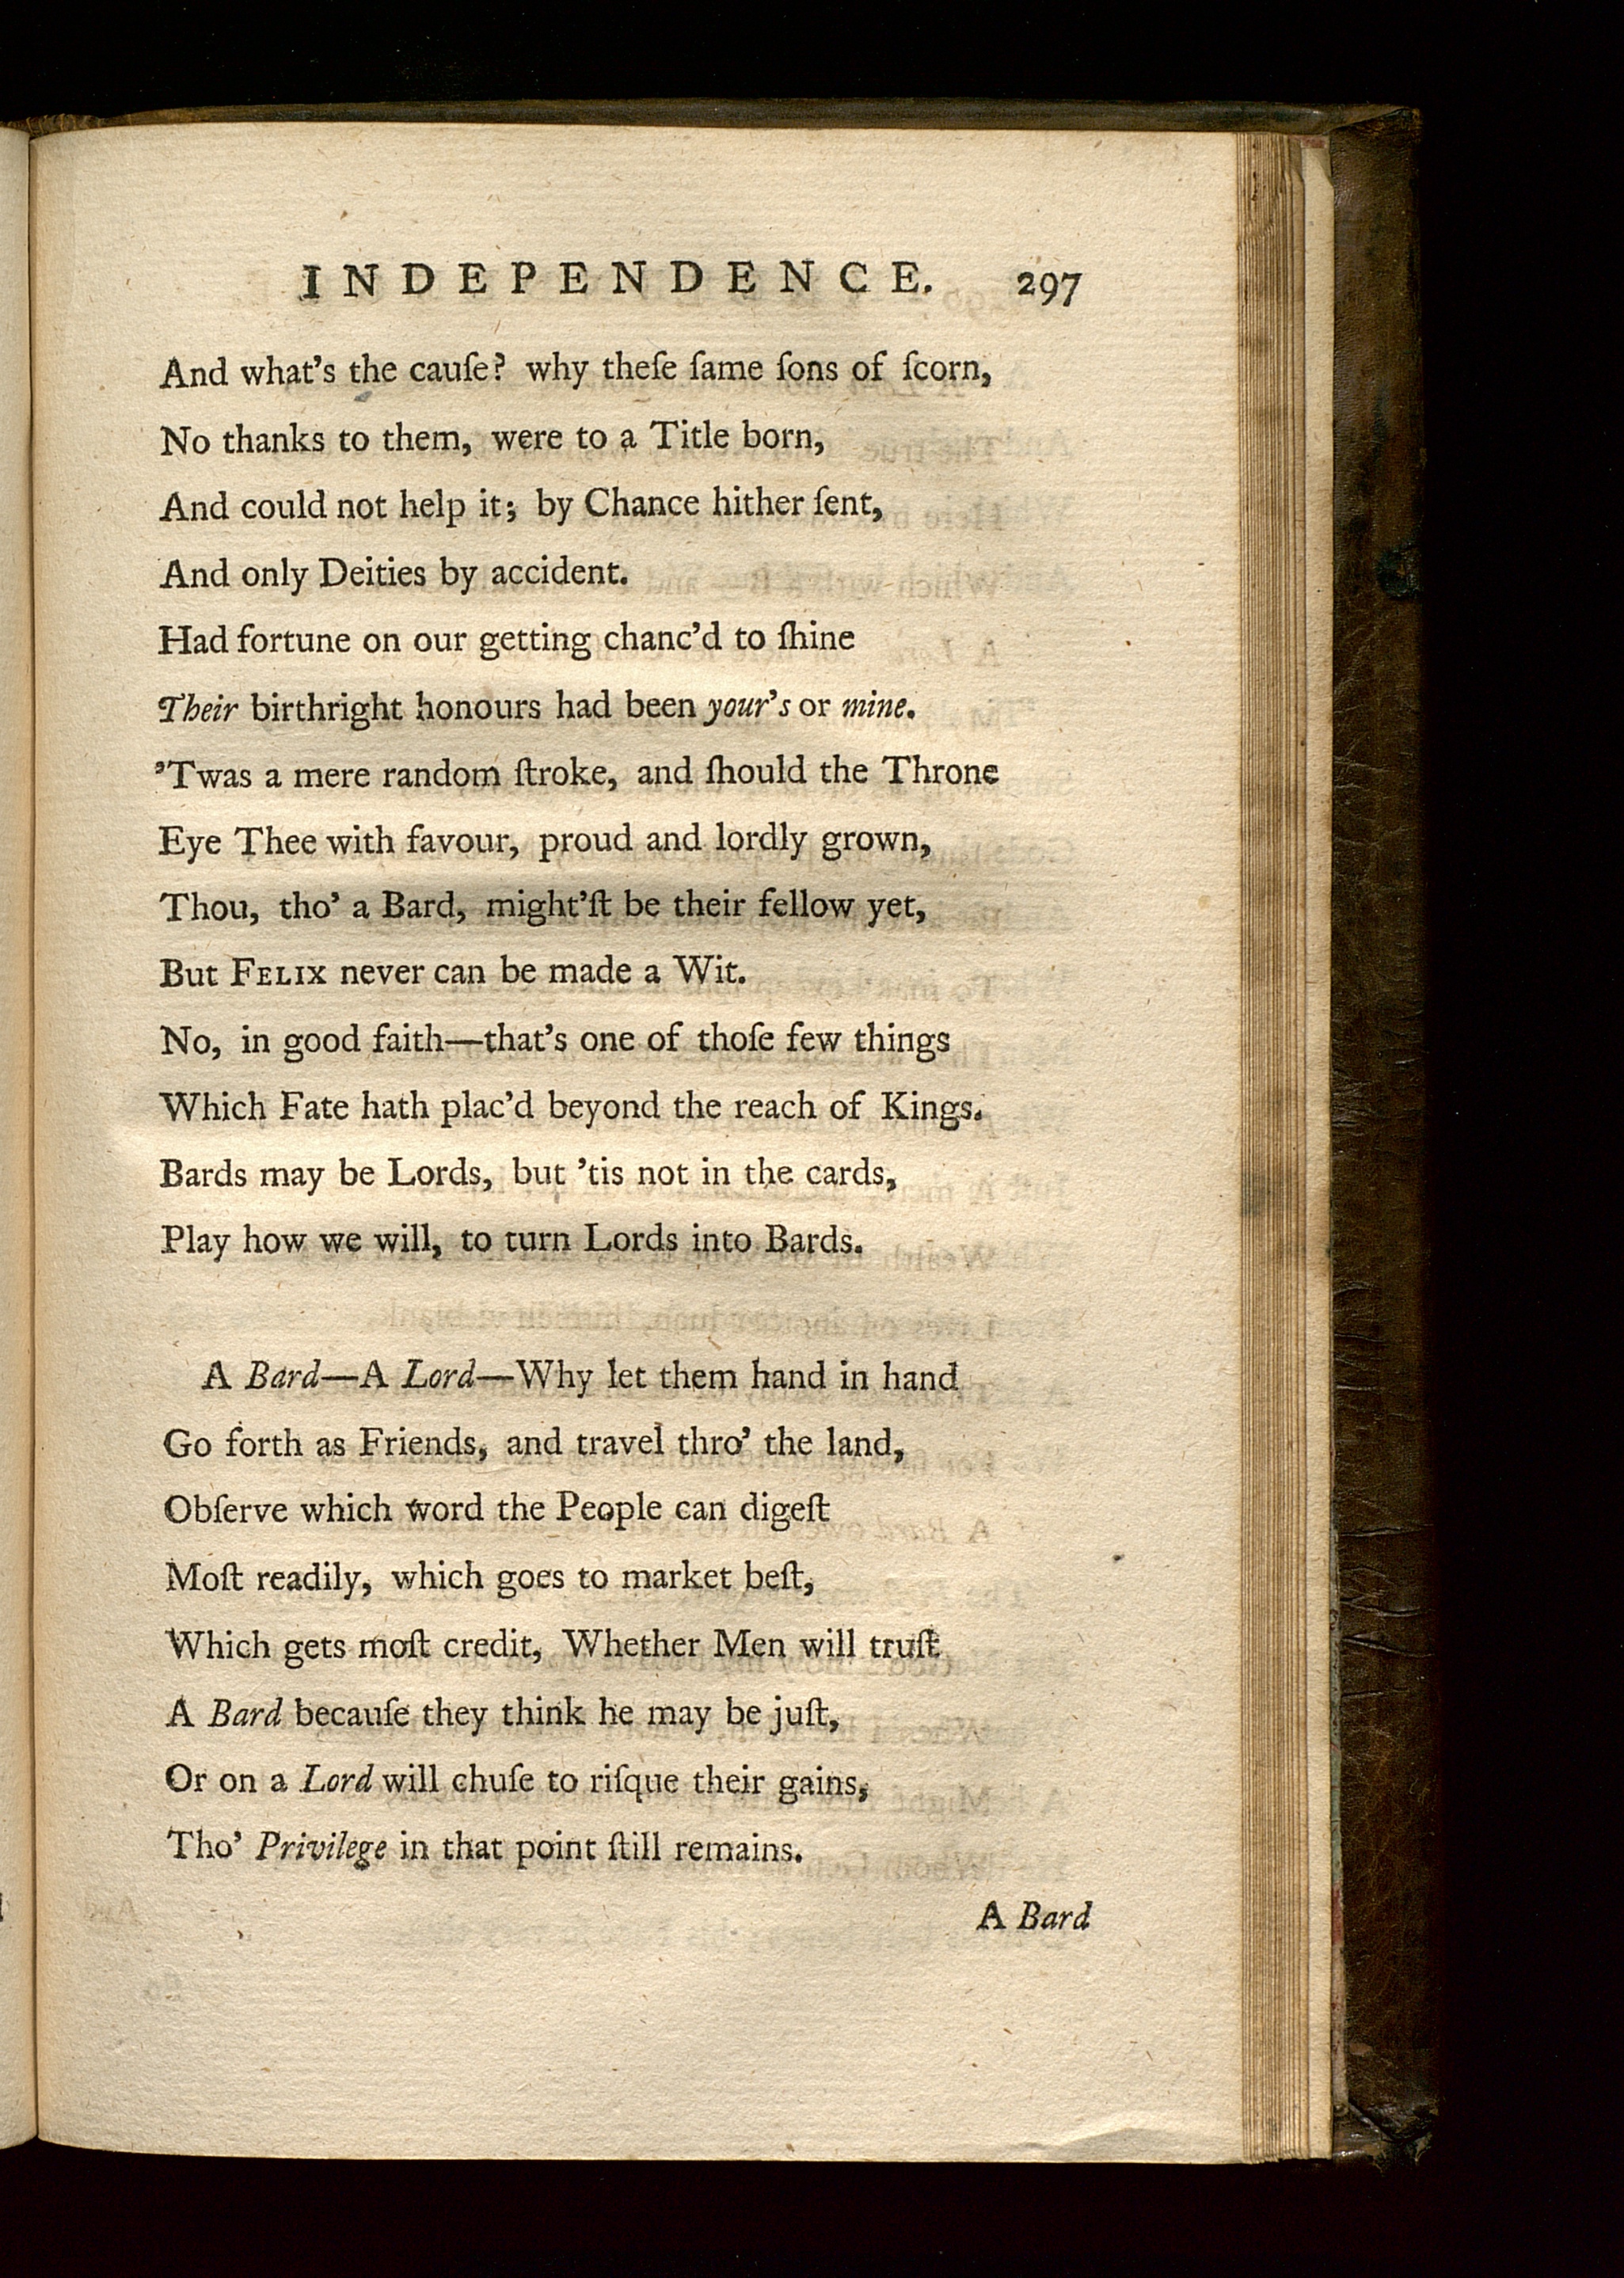 INDEPENDENCE. 297
And what's the cauſe? why theſe ſame ſons of ſcorn,
No thanks to them, were to a Title born,
And could not help it; by Chance hither ſent,
And only Deities by accident.
Had fortune on our getting chanc'd to ſhine
Their birthright honours had been your's or mine.
'Twas a mere random ſtroke, and ſhould the Throne
Eye Thee with favour, proud and lordly grown,
Thou, tho' a Bard, might'ſt be their fellow yet,
But FELIX never can be made a Wit.
No, in good faith—that's one of thoſe few things
Which Fate hath plac'd beyond the reach of Kings.
Bards may be Lords, but 'tis not in the cards,
Play how we will, to turn Lords into Bards.
A Bard—A Lord—Why let them hand in hand
Go forth as Friends, and travel thro' the land,
Obſerve which word the People can digeſt
Moſt readily, which goes to market beſt,
Which gets moſt credit, Whether Men will truſt
A Bard becauſe they think he may be juſt,
Or on a Lord will chuſe to riſque their gains,
Tho' Privilege in that point ſtill remains.
A Bard